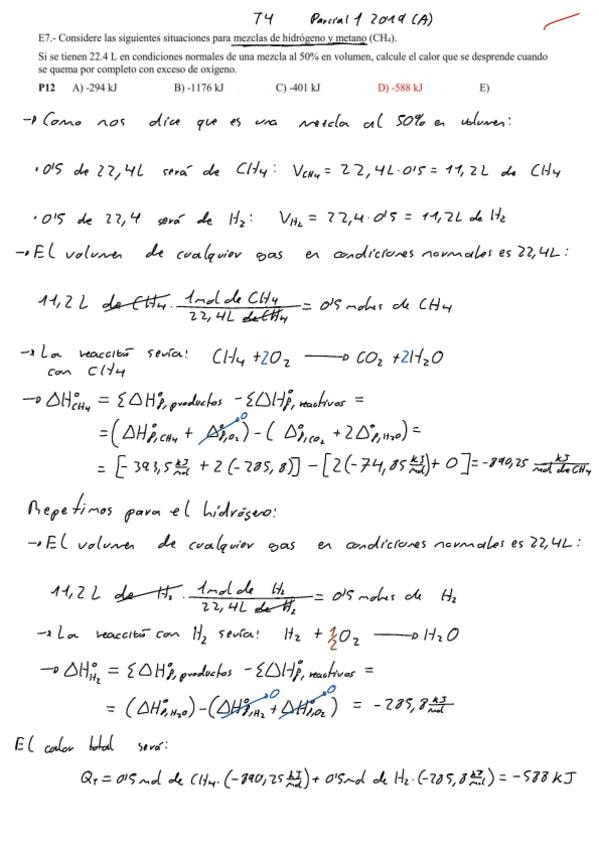 T4 Parcial 1 2019 (A)
E7.- Considere las siguientes situaciones para mezclas de hidrógeno y metano (CH₄).
Si se tienen 22.4 L en condiciones normales de una mezcla al 50% en volumen, calcule el calor que se desprende cuando
se quema por completo con exceso de oxígeno.
P12 A) -294 kJ B) -1176 kJ C) -401 kJ D) -588 kJ E)
→ Como nos dice que es una mezcla al 50% en volumen:
· 0'5 de 22,4L será de CH₄: V_CH₄ = 22,4L·0'5 = 11,2L de CH₄
· 0'5 de 22,4 será de H₂: V_H₂ = 22,4·0'5 = 11,2L de H₂
→ El volumen de cualquier gas en condiciones normales es 22,4L:
11,2L de CH₄ · 1mol de CH₄ / 22,4L de CH₄ = 0'5 moles de CH₄
→ La reacción sería: CH₄ + 2O₂ → CO₂ + 2H₂O
con CH₄
→ ΔH°CH₄ = ΣΔH°f, productos - ΣΔH°f, reactivos =
= (ΔH°f,CH₄ + Δ°f,O₂) - (Δ°f,CO₂ + 2Δ°f,H₂O) =
0
= [-393,5 kJ/mol + 2(-285,8)] - [2(-74,85 kJ/mol) + 0] = -890,25 kJ/mol de CH₄
Repetimos para el hidrógeno:
→ El volumen de cualquier gas en condiciones normales es 22,4L:
11,2L de H₂ · 1mol de H₂ / 22,4L de H₂ = 0'5 moles de H₂
→ La reacción con H₂ sería: H₂ + ½O₂ → H₂O
→ ΔH°H₂ = ΣΔH°f, productos - ΣΔH°f, reactivos =
= (ΔH°f,H₂O) - (ΔH°f,H₂ + ΔH°f,O₂) = -285,8 kJ/mol
0 0
El calor total será:
Q_T = 0'5mol de CH₄·(-890,25 kJ/mol) + 0'5mol de H₂·(-285,8 kJ/mol) = -588 KJ